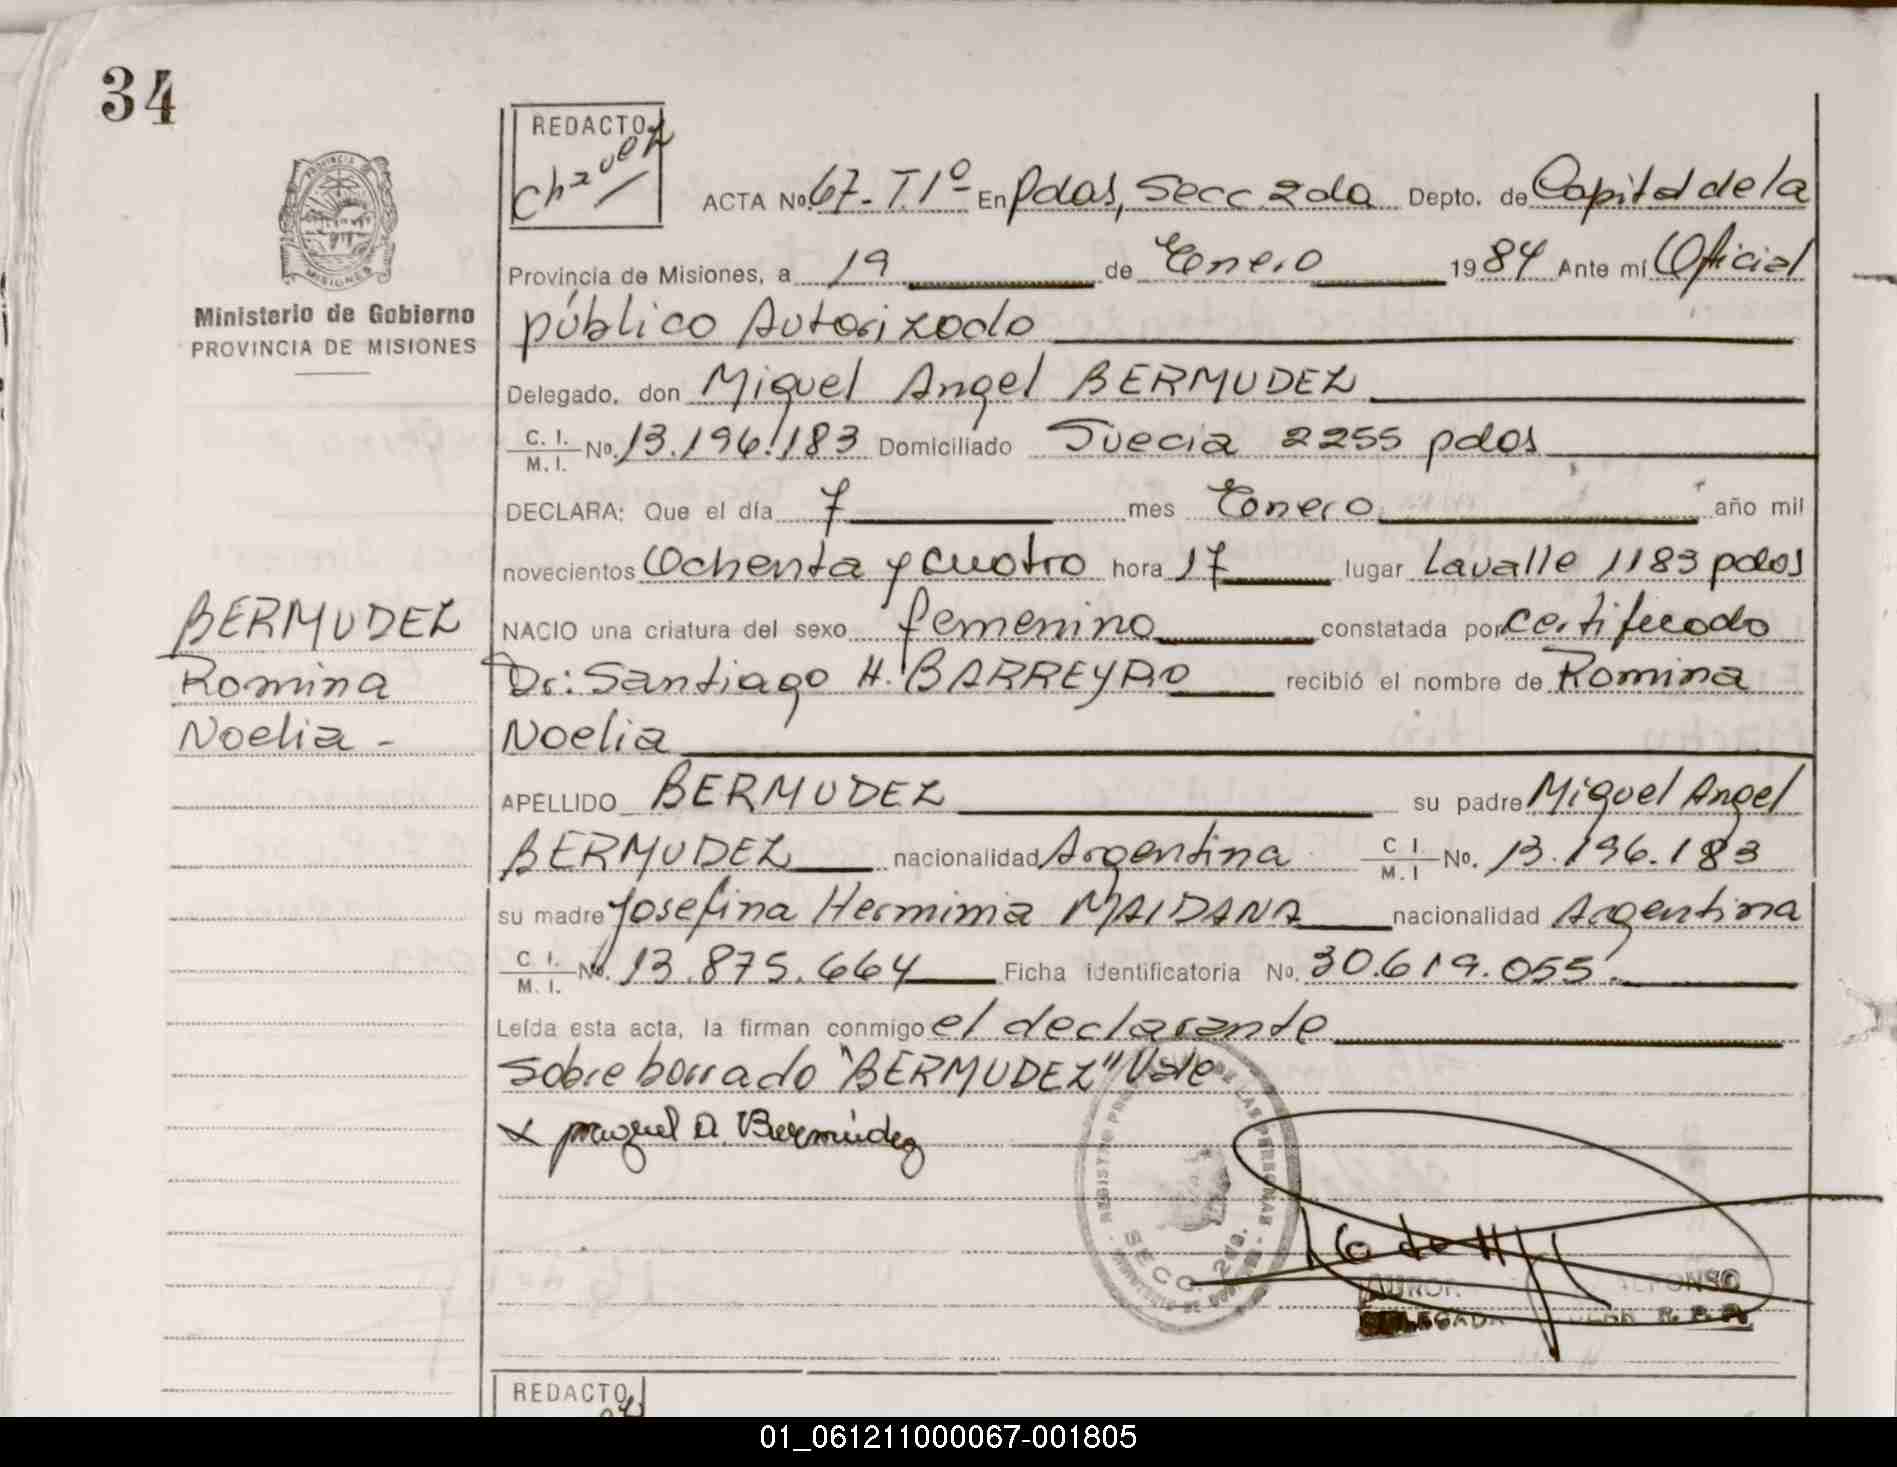 34
REDACTO
Chavez
ACTA No. 67- T.1º En Pdas, Secc 2da Depto. de Capital de la
Provincia de Misiones, a 19 de Enero 1984 Ante mí Oficial
público Autorizado
Delegado, don Miguel Angel BERMUDEZ
C. I. M. I. No. 13.196.183 Domiciliado Suecia 2255 pdas
DECLARA: Que el día 7 mes Enero año mil
novecientos Ochenta y cuatro hora 17 lugar Lavalle 1183 pdas
NACIO una criatura del sexo femenino constatada por certificado
Dr: Santiago H. BARREYRO recibió el nombre de Romina
Noelia
APELLIDO BERMUDEZ su padre Miguel Angel
BERMUDEZ nacionalidad Argentina C I. M. I No. 13.196.183
su madre Josefina Herminia MAIDANA nacionalidad Argentina
C I. M. I. No. 13.875.664 Ficha identificatoria No. 30.619.055.
Leída esta acta, la firman conmigo el declarante
Sobre borrado "BERMUDEZ" Vale
x Miguel A. Bermúdez
PROVINCIA DE
MISIONES
Ministerio de Gobierno
PROVINCIA DE MISIONES
BERMUDEZ
Romina
Noelia -
DE LAS PERSONAS
SECC. 2da.
REDACTO
01_061211000067-001805